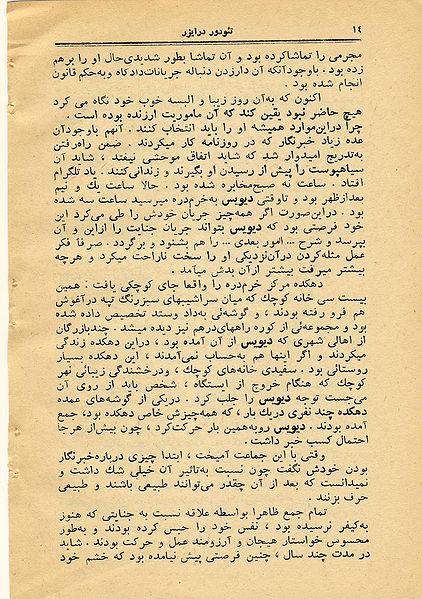 ۱۴
تئودور درایزر
مجرمی را تماشاکرده بود و آن تماشا بطور شدیدی‌حال او را برهم
زده بود . باوجودآنکه آن دارزدن دنباله جریانات‌دادگاه وبه‌حکم قانون
انجام شده بود .
اکنون که به‌آن روز زیبا و البسه خوب خود نگاه می کرد
هیچ حاضر نبود یقین کند که آن ماموریت ارزنده بوده است .
چرا دراین‌موارد همیشه او را باید انتخاب کنند . آنهم باوجودآن
عده زیاد خبرنگار که در روزنامه کار میکردند . ضمن راه‌رفتن
به‌تدریج امیدوار شد که شاید اتفاق موحشی نیفتد ، شاید آن
سیاهپوست را پیش از رسیدن او بگیرند و زندانی‌کنند . یاد تلگرام
افتاد . ساعت نه صبح‌مخابره شده بود . حالا ساعت یك و نیم
بعدازظهر بود و تاوقتی دیویس به‌خرم‌دره میرسید ساعت سه شده
بود . دراین‌صورت اگر همه‌چیز جریان خودش را طی می‌کرد این
خود فرصتی بود که دیویس بتواند جریان جنایت را ازاین و آن
بپرسد و شرح ... امور بعدی ... را هم بشنود و برگردد . صرفا فکر
عمل مثله‌کردن درآن‌نزدیکی او را سخت ناراحت میکرد و هرچه
بیشتر میرفت بیشتر ازآن بدش میآمد .
دهکده مرکز خرم‌دره را واقعا جای کوچکی یافت : همین
بیست سی خانه کوچك که میان سراشیبهای سبزرنگ تپه درآغوش
هم فرو رفته بودند ، و گوشه‌ئی به‌داد وستد تخصیص داده شده
بود و مجموعه‌ئی از کوره راههای‌درهم نیز دیده میشد . چندبازرگان
از اهالی شهری که دیویس از آن آمده بود ، دراین دهکده زندگی
میکردند و اگر اینها هم به‌حساب نمی‌آمدند ، این دهکده بسیار
روستائی بود . سفیدی خانه‌های کوچك ، ودرخشندگی زیبائی نهر
کوچك که هنگام خروج از ایستگاه ، شخص باید از روی آن
می‌جست توجه دیویس را جلب کرد . دریکی از گوشه‌های عمده
دهکده چند نفری دریك بار ، که همه‌چیزش خاص دهکده بود، جمع
آمده بودند . دیویس روبه‌همین بار حرکت‌کرد ، چون بیش‌از هرجا
احتمال کسب خبر داشت .
وقتی با این جماعت آمیخت ، ابتدا چیزی درباره‌خبرنگار
بودن خودش نگفت چون نسبت به‌تاثیر آن خیلی شك داشت و
نمیدانست که بعد از آن چقدر می‌توانند طبیعی باشند و طبیعی
حرف بزنند .
تمام جمع ظاهرا بواسطه علاقه نسبت به جنایتی که هنوز
به‌کیفر نرسیده بود ، نفس خود را حبس کرده بودند و به‌طور
محسوس خواستار هیجان و آرزومند عمل و حرکت بودند . شاید
در مدت چند سال ، چنین فرصتی پیش نیامده بود که خشم خود